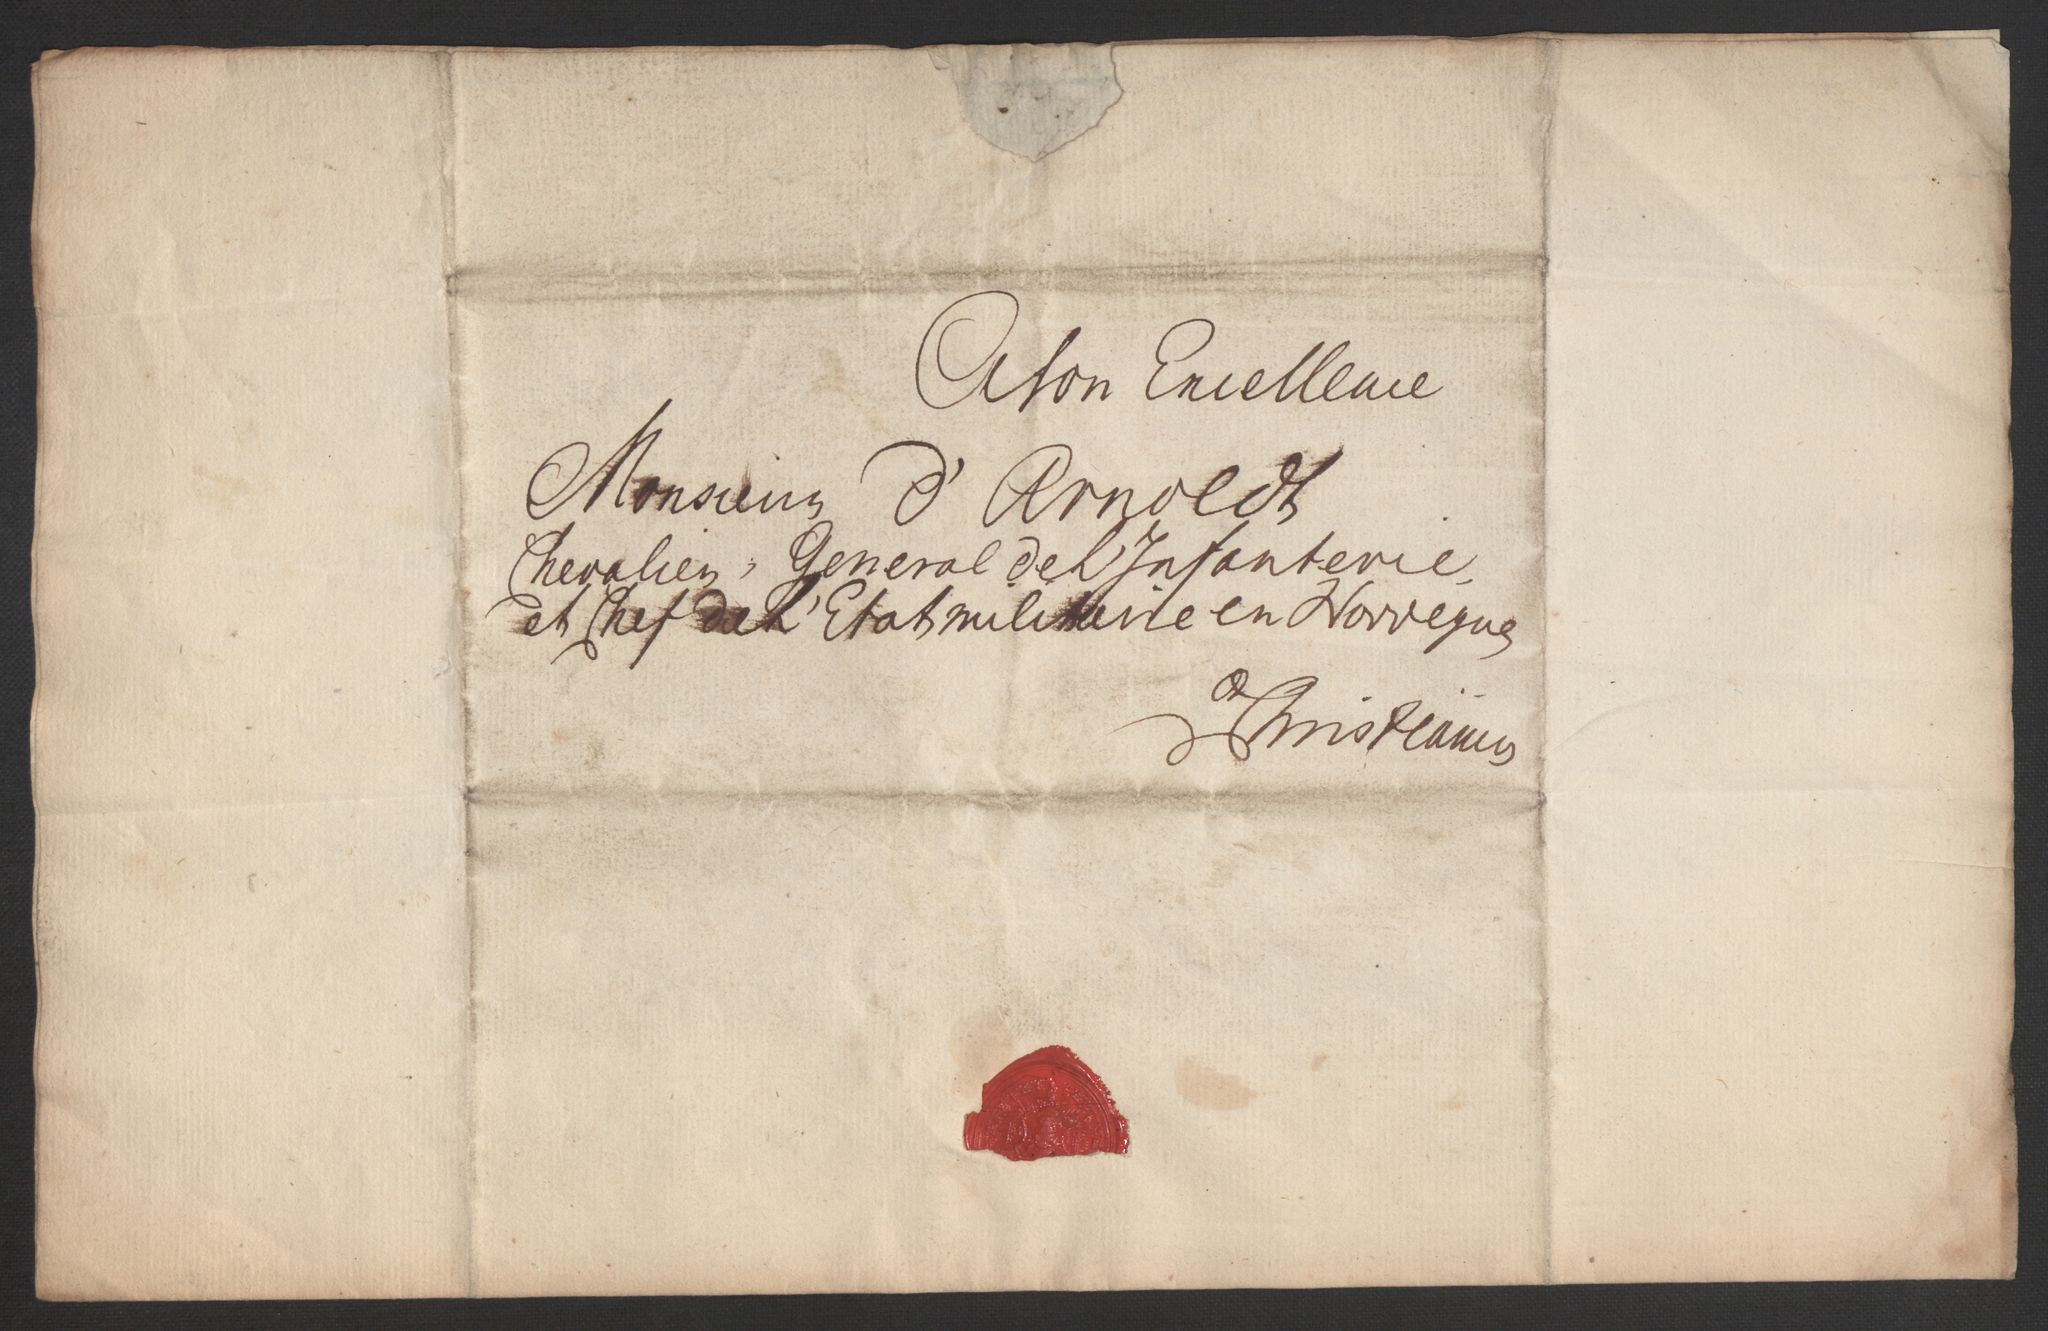 A son Excellence
Monsieur d'Arnoldt
Chevalier, General de L'Infanterie,
et Chef de L'Etat militairie en Norvegue
a Christiania